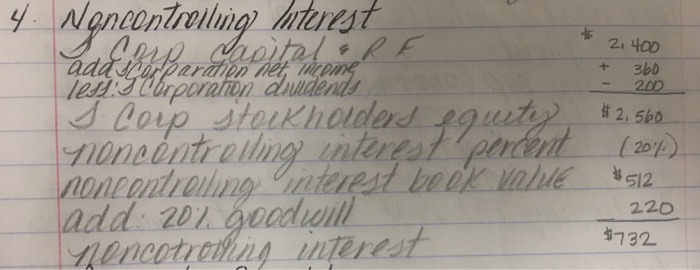 4. Noncontrolling Interest
S Corp capital & R E $ 2,400
add: S Corporation net income + 360
less: S Corporation dividends - 200
S Corp stockholders equity $2,560
noncontrolling interest percent (20%)
noncontrolling interest book value $512
add: 20% goodwill 220
noncotrolling interest $732